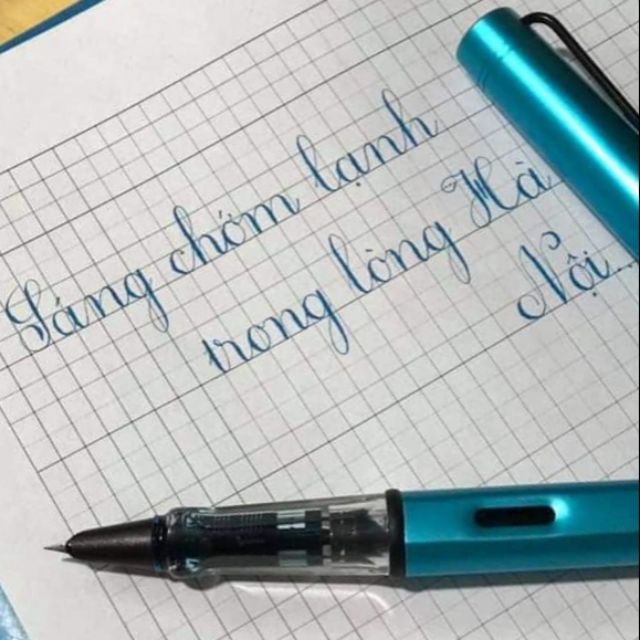 Sáng chớm lạnh
trong lòng Hà
Nội...